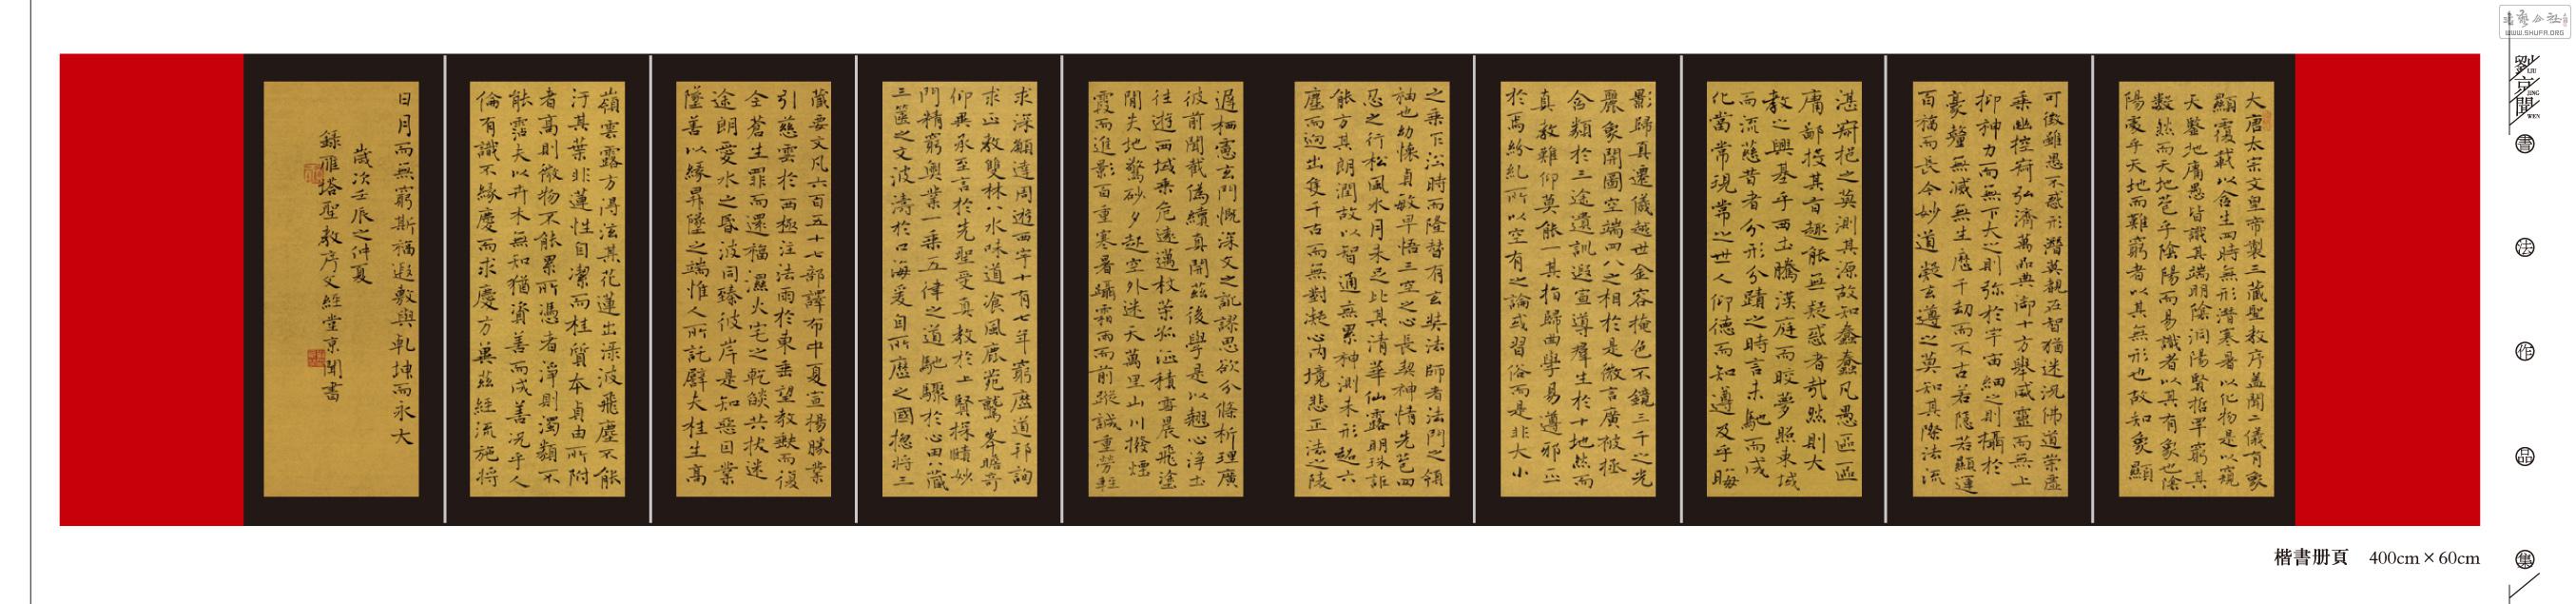 大唐太宗文皇帝製三藏聖教序盖聞二儀有象
顯覆載以含生四時無形潛寒暑以化物是以窺
天鑒地庸愚皆識其端明陰洞陽賢哲罕窮其
數然而天地苞乎陰陽而易識者以其有象也陰
陽處乎天地而難窮者以其無形也故知象顯
可徵雖愚不惑形潛莫覩在智猶迷況佛道崇虛
乘幽控寂弘濟萬品典御十方舉威靈而無上
抑神力而無下大之則弥於宇宙細之則攝於
豪釐無滅無生歷千劫而不古若隱若顯運
百福而長今妙道凝玄遵之莫知其際法流
湛寂挹之莫測其源故知蠢蠢凡愚區區
庸鄙投其旨趣能無疑惑者哉然則大
教之興基乎西土騰漢庭而皎夢照東域
而流慈昔者分形分蹟之時言未馳而成
化當常現常之世人仰德而知遵及乎晦
影歸真遷儀越世金容掩色不鏡三千之光
麗象開圖空端四八之相於是微言廣被拯
含類於三途遺訓遐宣導羣生於十地然而
真教難仰莫能一其指歸曲學易遵邪正
於焉紛糺所以空有之論或習俗而是非大小
之乘乍沿時而隆替有玄奘法師者法門之領
袖也幼懷貞敏早悟三空之心長契神情先苞四
忍之行松風水月未足比其清華仙露明珠詎
能方其朗潤故以智通無累神測未形超六
塵而迥出隻千古而無對凝心內境悲正法之陵
遲栖慮玄門慨深文之訛謬思欲分條析理廣
彼前聞截偽續真開茲後學是以翹心淨土
往遊西域乘危遠邁杖策孤征積雪晨飛塗
閒失地驚砂夕起空外迷天萬里山川撥煙
霞而進影百重寒暑躡霜雨而前蹤誠重勞輕
求深願達周遊西宇十有七年窮歷道邦詢
求正教雙林八水味道飡風鹿苑鷲峯瞻奇
仰異承至言於先聖受真教於上賢探賾妙
門精窮奧業一乘五律之道馳驟於心田八藏
三篋之文波濤於口海爰自所歷之國揔將三
藏要文凡六百五十七部譯布中夏宣揚勝業
引慈雲於西極注法雨於東垂聖教缺而復
全蒼生罪而還福濕火宅之乾燄共拔迷
途朗愛水之昏波同臻彼岸是知惡因業
墜善以緣昇墜之端惟人所託譬夫桂生高
嶺雲露方得泫其花蓮出渌波飛塵不能
汙其葉非蓮性自潔而桂質本貞由所附
者高則微物不能累所憑者淨則濁類不
能霑夫以卉木無知猶資善而成善況乎人
倫有識不緣慶而求慶方冀茲經流施將
日月而無窮斯福遐敷與乹坤而永大
歲次壬辰之仲夏
録雁塔聖教序父經堂京聞書
劉京聞書法作品集
LIU
JING
WEN
楷書册頁 400cm×60cm
WWW.SHUFA.ORG